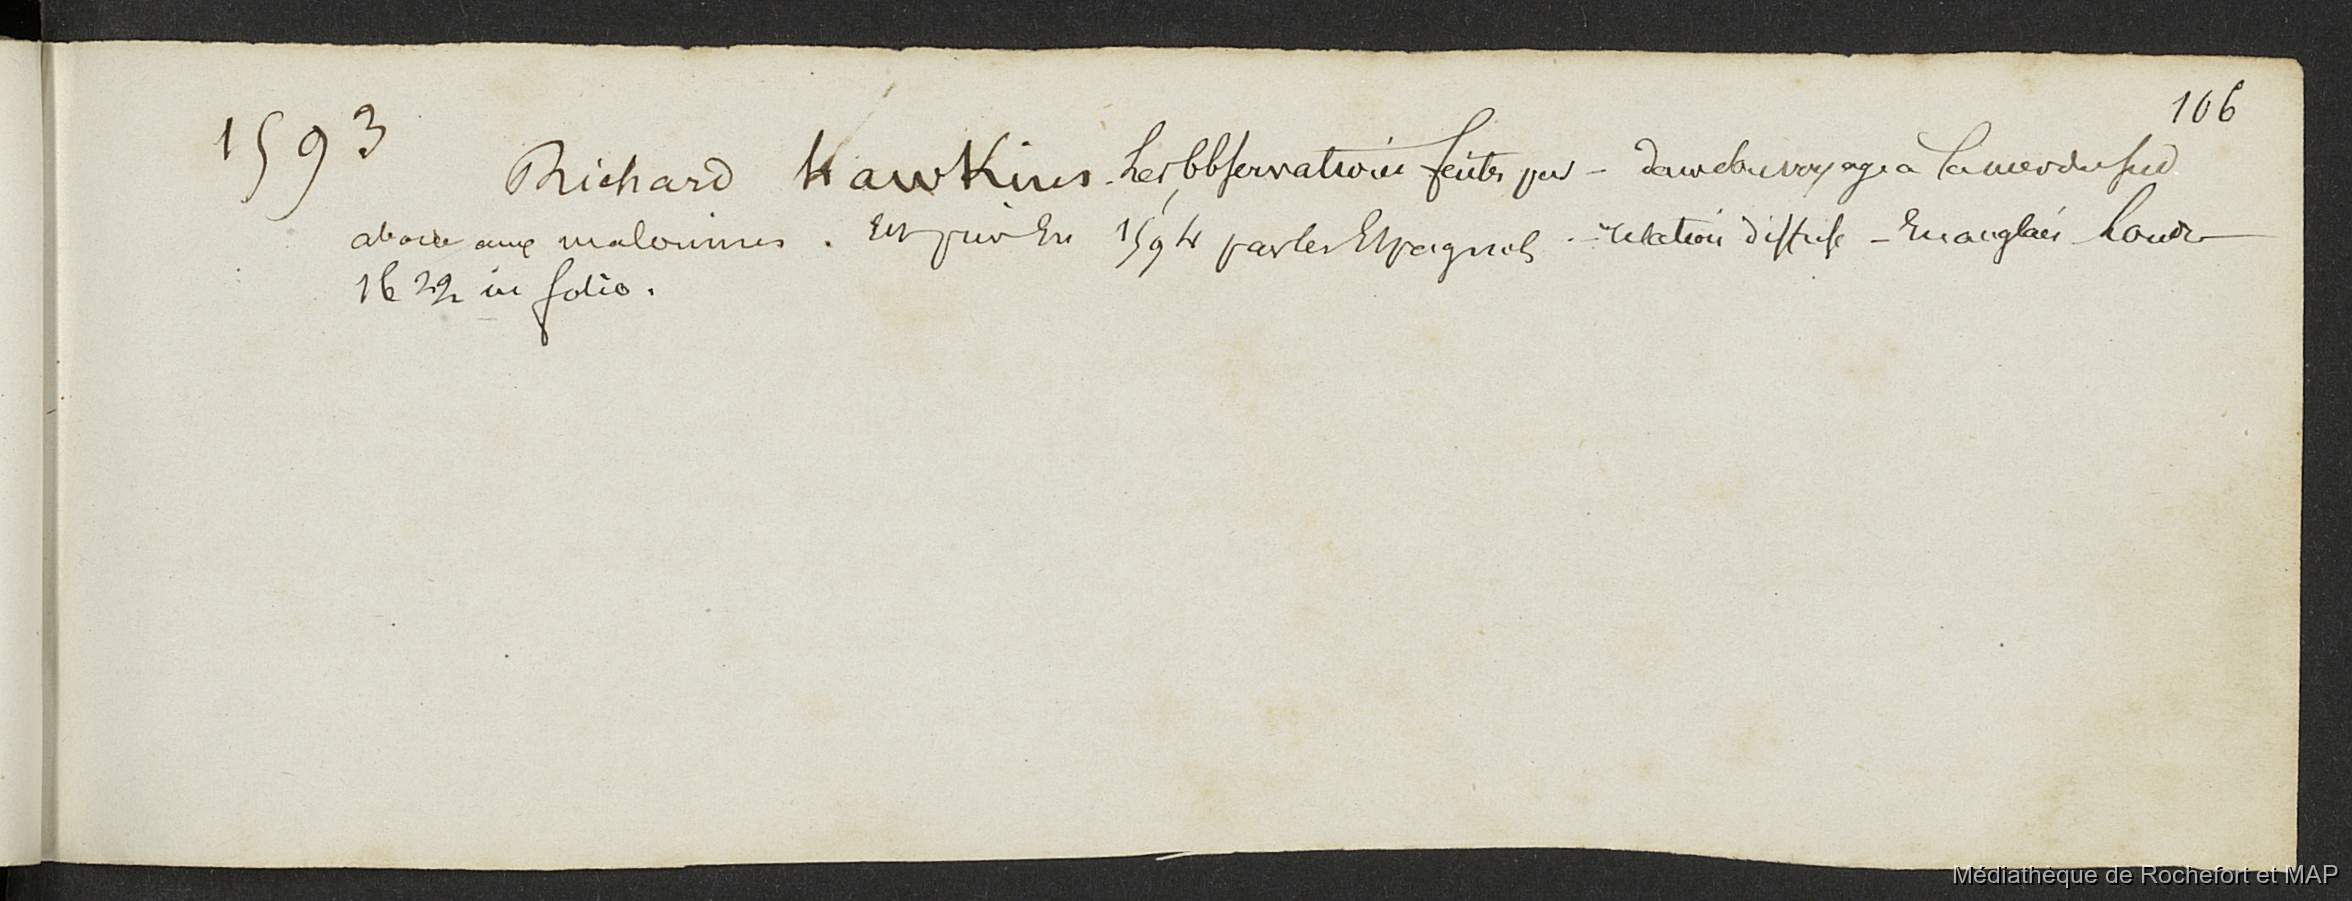 106
1593 Richard Hawkins. Les observations faites par - dans son voyage à la mer du sud
aborde aux malouines. Est pris en 1594 par les Espagnols - relation diffuse - En anglais Londre
1622 in folio.
Médiathèque de Rochefort et MAP